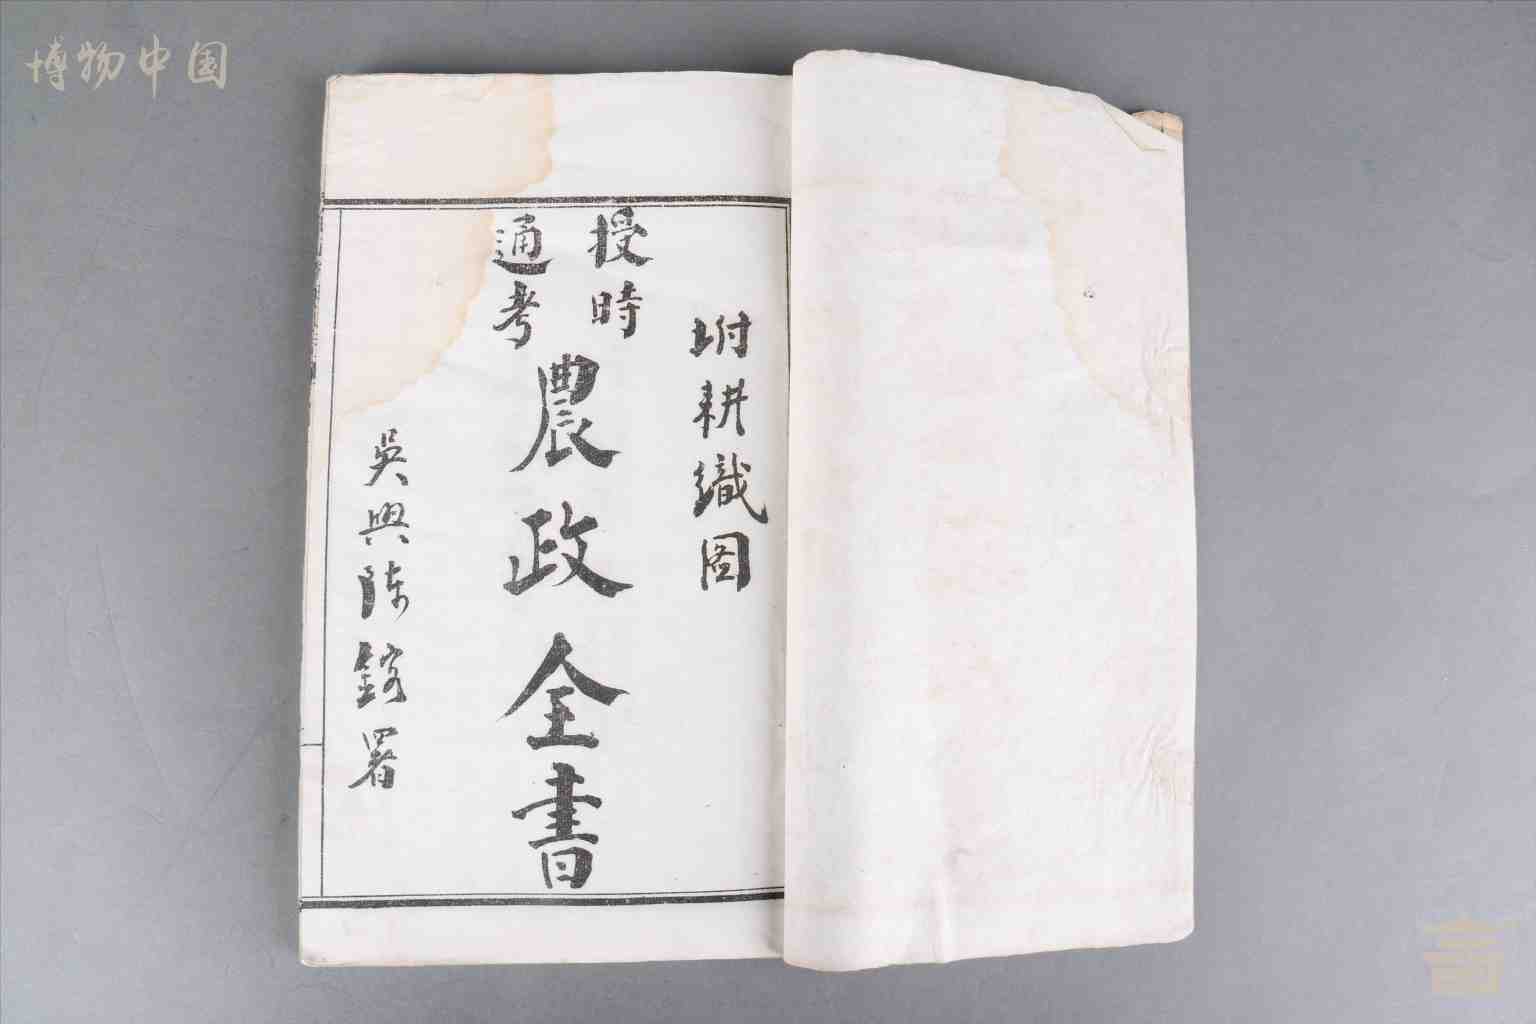 博物中国
坿耕織圖
授時
通考
農政全書
吳興陳署